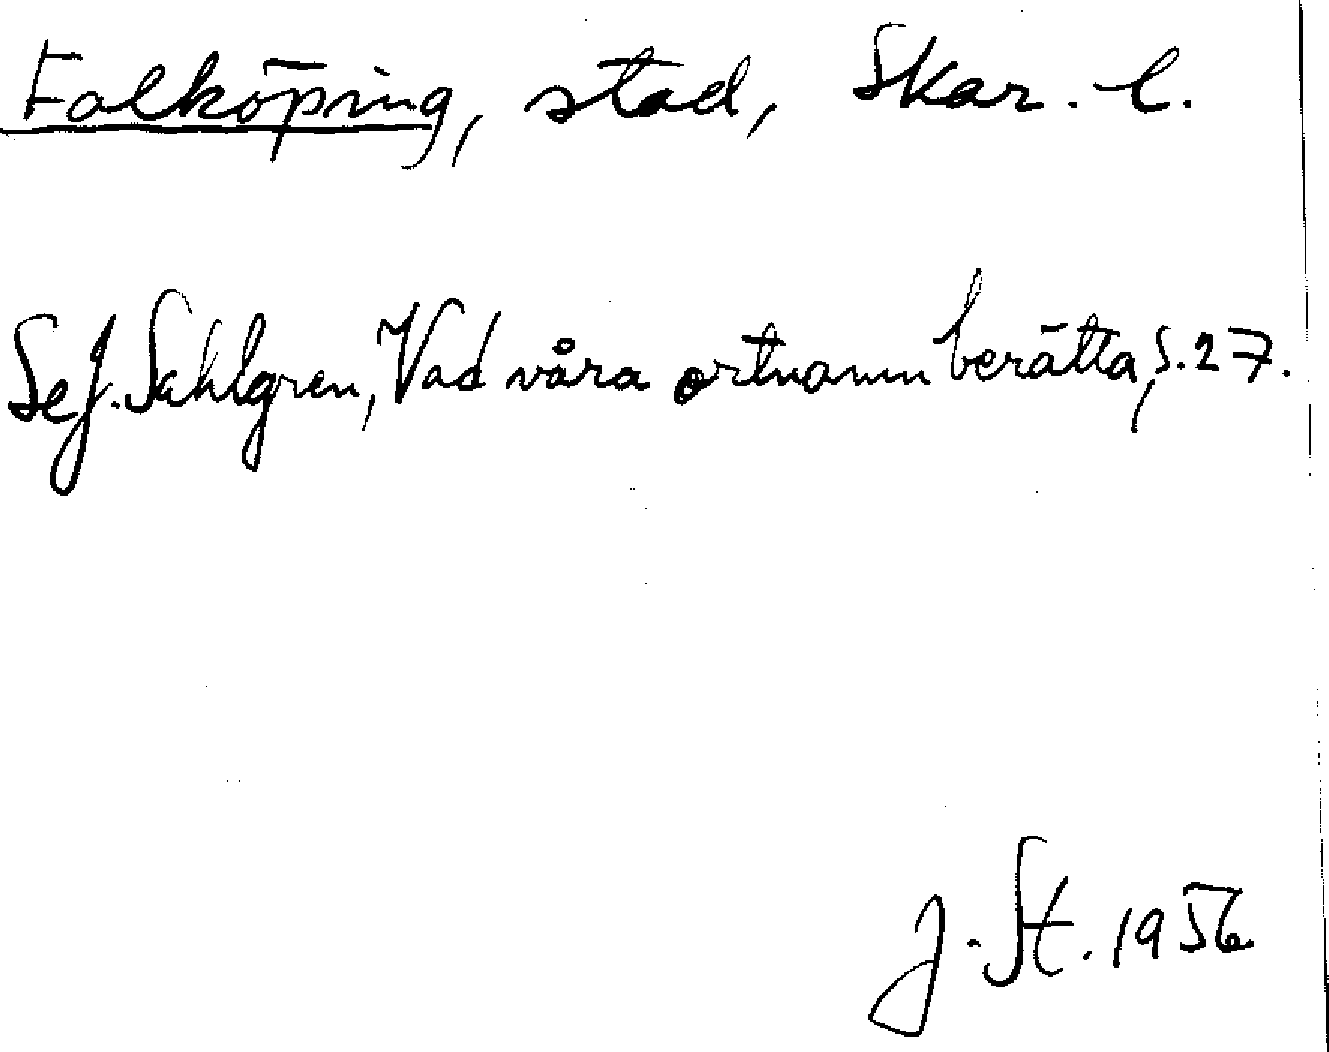 Falköping, stad, Skar. l.
Se J. Sahlgren, Vad våra ortnamn berätta, s. 27.
J. St. 1956